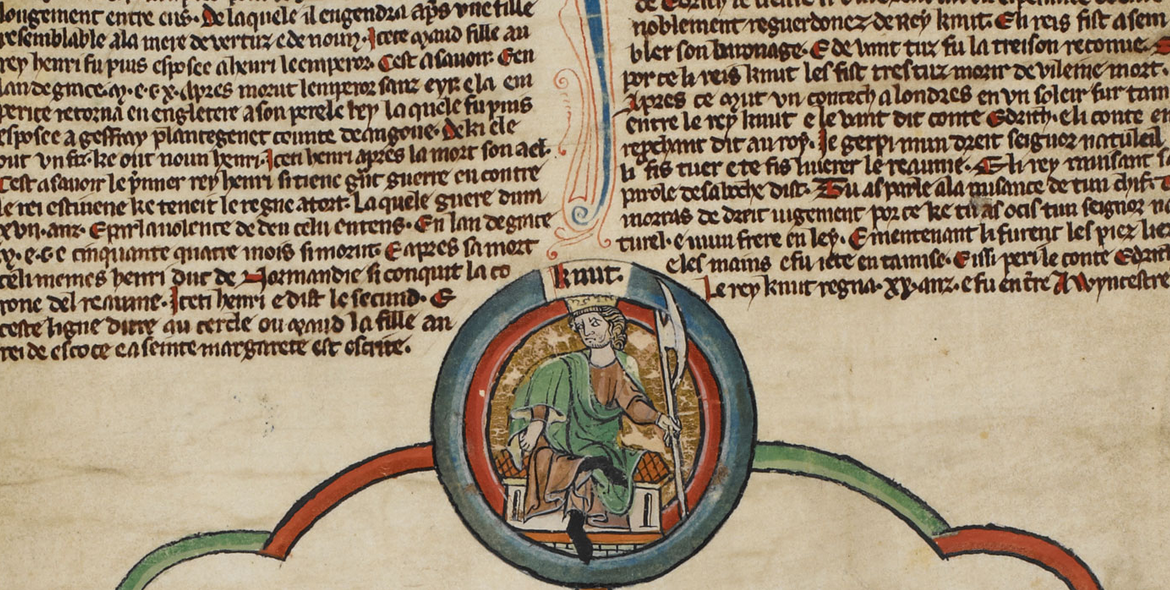 longement entre eus. De la quele il engendra aps vne fille
resemblable a la mere de vertuz e de noun. Icete maud fille au
rey henri fu puis espose a henri le emperor. Cest a sauoir. Gen
lan de grace. m. e. c x. Apres morut lemperor sanz eyr. e la em
perice retorna en engletere a son pere le Rey la quele fu puis
espose a geffray plantegenet counte de angoue. De ki ele
out vn fiz. ke out noun henri. Icen henri apres la mort son ael.
Cest a sauoir le pmer rey henri si tiene gnt guerre en contre
le rei estiuene ke teneit le regne a tort. La quele guere dura
xvii. anz. E par la uolence de deu celui entens. En lan de grace
m. c. e cinquante quatre mois si morut. E apres sa mort
celi memes henri duc de Normandie si conquit la co
rone del reaume. Iceti henri e dist le secund. E
ceste ligne ditre au cercle ou maud la fille au
rei de escoce e a seinte margarete est escrite.
noblement reguerdonez de Rey knut. E li reis fist asem
bler son baronage. E de vant tuz fu la treison reconue.
por ce li reis knut les fist trestuz morir de vileine mort.
Apres ce crut vn contech a londres en vn soleir sur tam
entre le rey knut e le vant dit conte Edrith. e li conte en
repchant dit au roy. Ie gerpi mun dreit seignor naturel
li fis tuer e te fis liuerer le reaume. E li rey rauisant s
parole de sa boche dist. Tu as parle a la nusance de tun chif.
morras de dreit iugement por ce ke tu as ocis tun seignor na
turel. e mun frere en ley. E meintenant li furent les piez lie
e les mains e fu iete en tamise. E issi peri le conte Edrith
Le rey knut regna. xx. anz. e fu enterre A Wyncestre
knut.